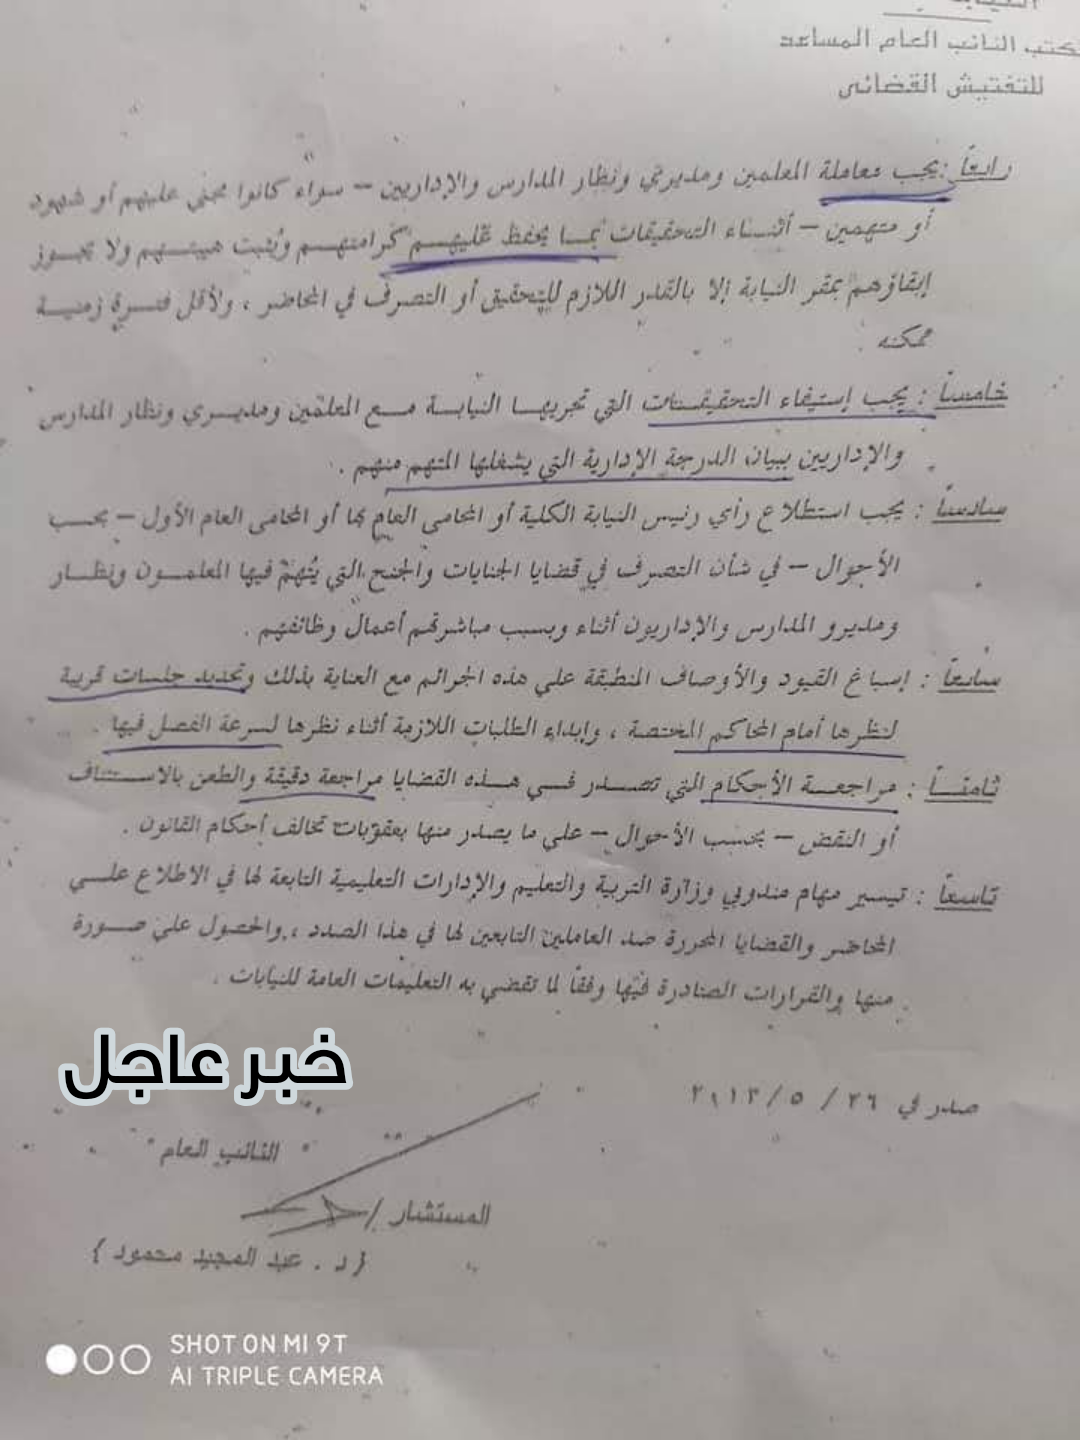 مكتب النائب العام المساعد
للتفتيش القضائى
رابعاً : يجب معاملة المعلمين ومديري ونظار المدارس والإداريين – سواء كانوا مجنى عليهم أو شهود
أو متهمين – أثنـــاء التحقيقات بمـــا يحفظ عليهـــم كرامتهـــم ويثبت هيبتـــهم ولا يجـوز
إبقاؤهم بمقر النيابة إلا بالقدر اللازم للتحقيق أو التصرف في المحاضر ، ولأقل فتـــرة زمنيـــة
ممكنه .
خامساً : يجب إستيفاء التحقيقـــات التي تجريهـــا النيابـــة مـــع المعلمين ومديـــري ونظار المدارس
والإداريين ببيان الدرجة الإدارية التي يشغلها المتهم منهم .
سادساً : يجب استطلاع رأي رئيس النيابة الكلية أو المحامى العام بها أو المحامى العام الأول – بحسب
الأحوال – في شأن التصرف في قضايا الجنايات والجنح التي يُتهم فيها المعلمـــون ونظـــار
ومديرو المدارس والإداريون أثناء وبسبب مباشرتهم أعمال وظائفهم .
سابعاً : إسباغ القيود والأوصاف المنطبقة علي هذه الجرائم مع العناية بذلك وتحديد جلسات قريبة
لنظرها أمام المحاكم المختصة ، وإبداء الطلبات اللازمة أثناء نظرها لسرعة الفصل فيها .
ثامنـــاً : مراجعـــة الأحكام التي تصـــدر فـــي هـــذه القضايا مراجعة دقيقة والطعن بالاستئناف
أو النقض – بحسب الأحوال – علي ما يصدر منها بعقوبات تخالف أحكام القانون .
تاسعاً : تيسير مهام مندوبي وزارة التربية والتعليم والإدارات التعليمية التابعة لها في الاطلاع علـــي
المحاضر والقضايا المحررة ضد العاملين التابعين لها في هذا الصدد ، والحصول علي صـــورة
منها والقرارات الصادرة فيها وفقاً لما تقضي به التعليمات العامة للنيابات .
خبر عاجل
صدر في ٢٦ / ٥ /
" النائب العام "
المستشار /
( د . عبد المجيد محمود )
SHOT ON MI 9T
AI TRIPLE CAMERA